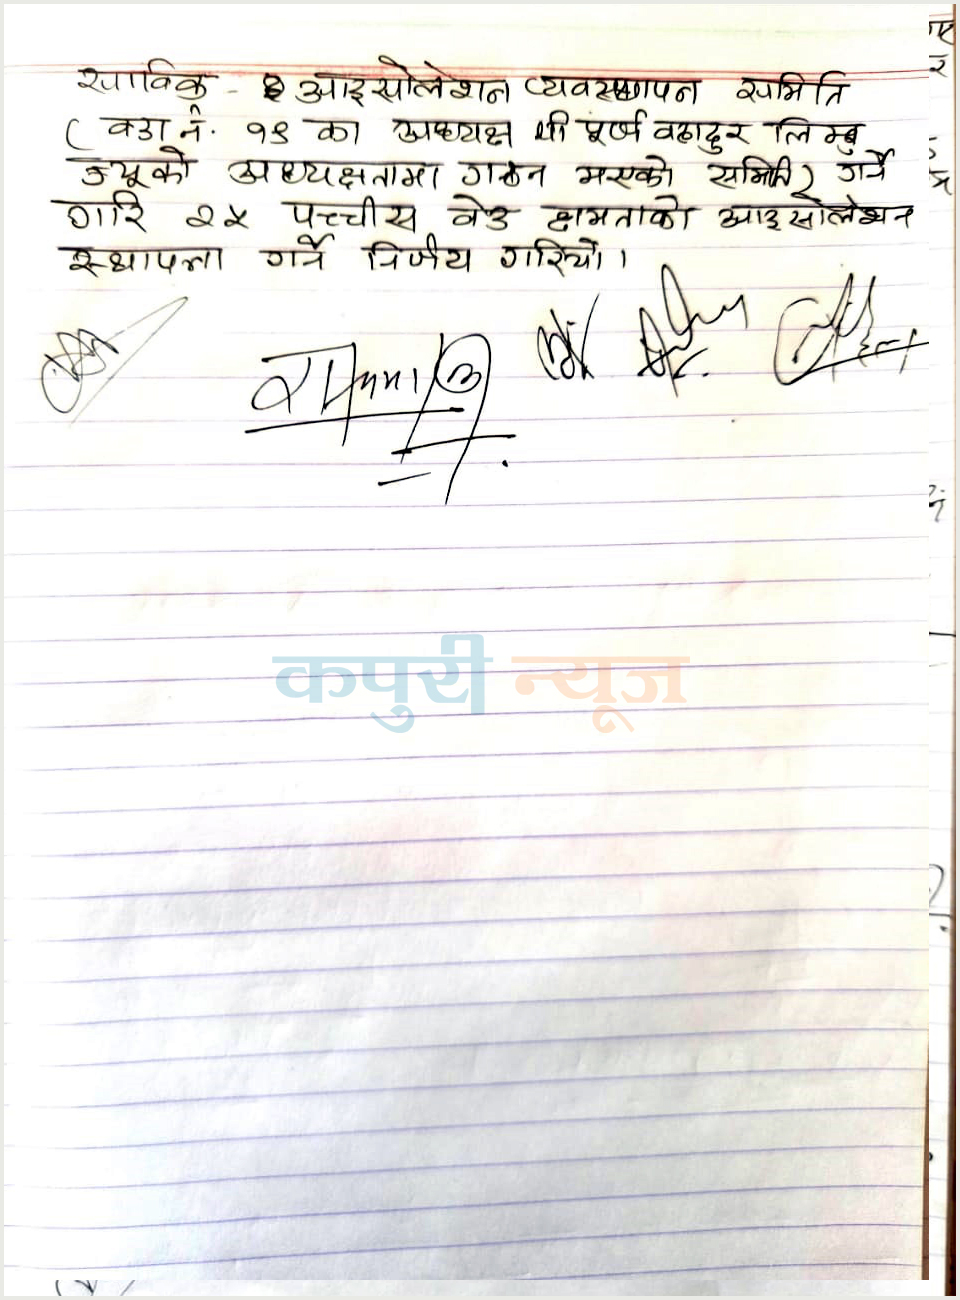 साविक - आइसोलेशन व्यवस्थापन समिति
(वडा नं. १९ का अध्यक्ष श्री पूर्ण बहादुर लिम्बु
ज्यूको अध्यक्षतामा गठन भएको समिति) गर्ने
गरि २५ पच्चीस वेड क्षमताको आइसोलेशन
स्थापना गर्ने निर्णय गरियो।
कपुरी न्यूज